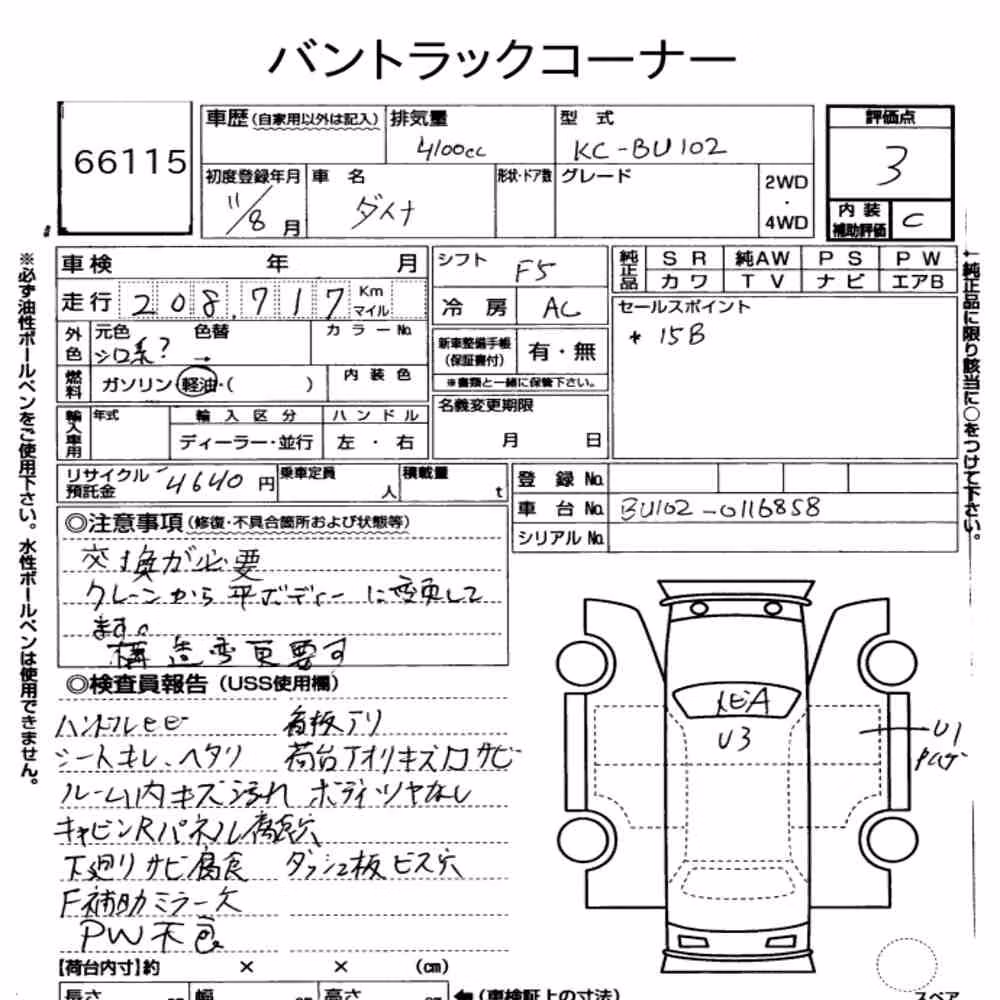 バントラックコーナー
66115
車歴(自家用以外は記入)
排気量
4100cc
型 式
KC-BU102
評価点
3
内装補助評価
C
初度登録年月
11/8月
車 名
ダイナ
形状・ドア数
グレード
2WD
・
4WD
車検 年 月
シフト
F5
純正品
SR 純AW PS PW
カワ TV ナビ エアB
走行 208,717 Km マイル
冷房
AC
セールスポイント
* 15B
外色
元色 色替
シロ系? →
カラーNo.
新車整備手帳(保証書付)
有・無
※書類と一緒に保管下さい。
燃料
ガソリン・軽油・( )
内装色
名義変更期限
月 日
輸入車用
年式
輸入区分
ディーラー・並行
ハンドル
左・右
リサイクル預託金
4640円
乗車定員
人
積載量
t
登録No.
車台No.
BU102-0116858
シリアルNo.
◎注意事項(修復・不具合箇所および状態等)
交換が必要
クレーンから平ボディーに変更して
ます。
構造変更要す
◎検査員報告(USS使用欄)
ハンドルセビ 看板アリ
シートキレ、ヘタリ 荷台アオリキズ凹サビ
ルーム内キズ汚れ ボディツヤなし
キャビンRパネル腐食穴
下廻りサビ腐食 ダッシュ板ビス穴
F補助ミラー欠
PW不良
U3
U1
【荷台内寸】約 × × (cm)
長さ cm 幅 cm 高さ cm
(車検証上の寸法)
スペア
※必ず油性ボールペンをご使用下さい。水性ボールペンは使用できません。
←純正品に限り該当に○をつけて下さい。